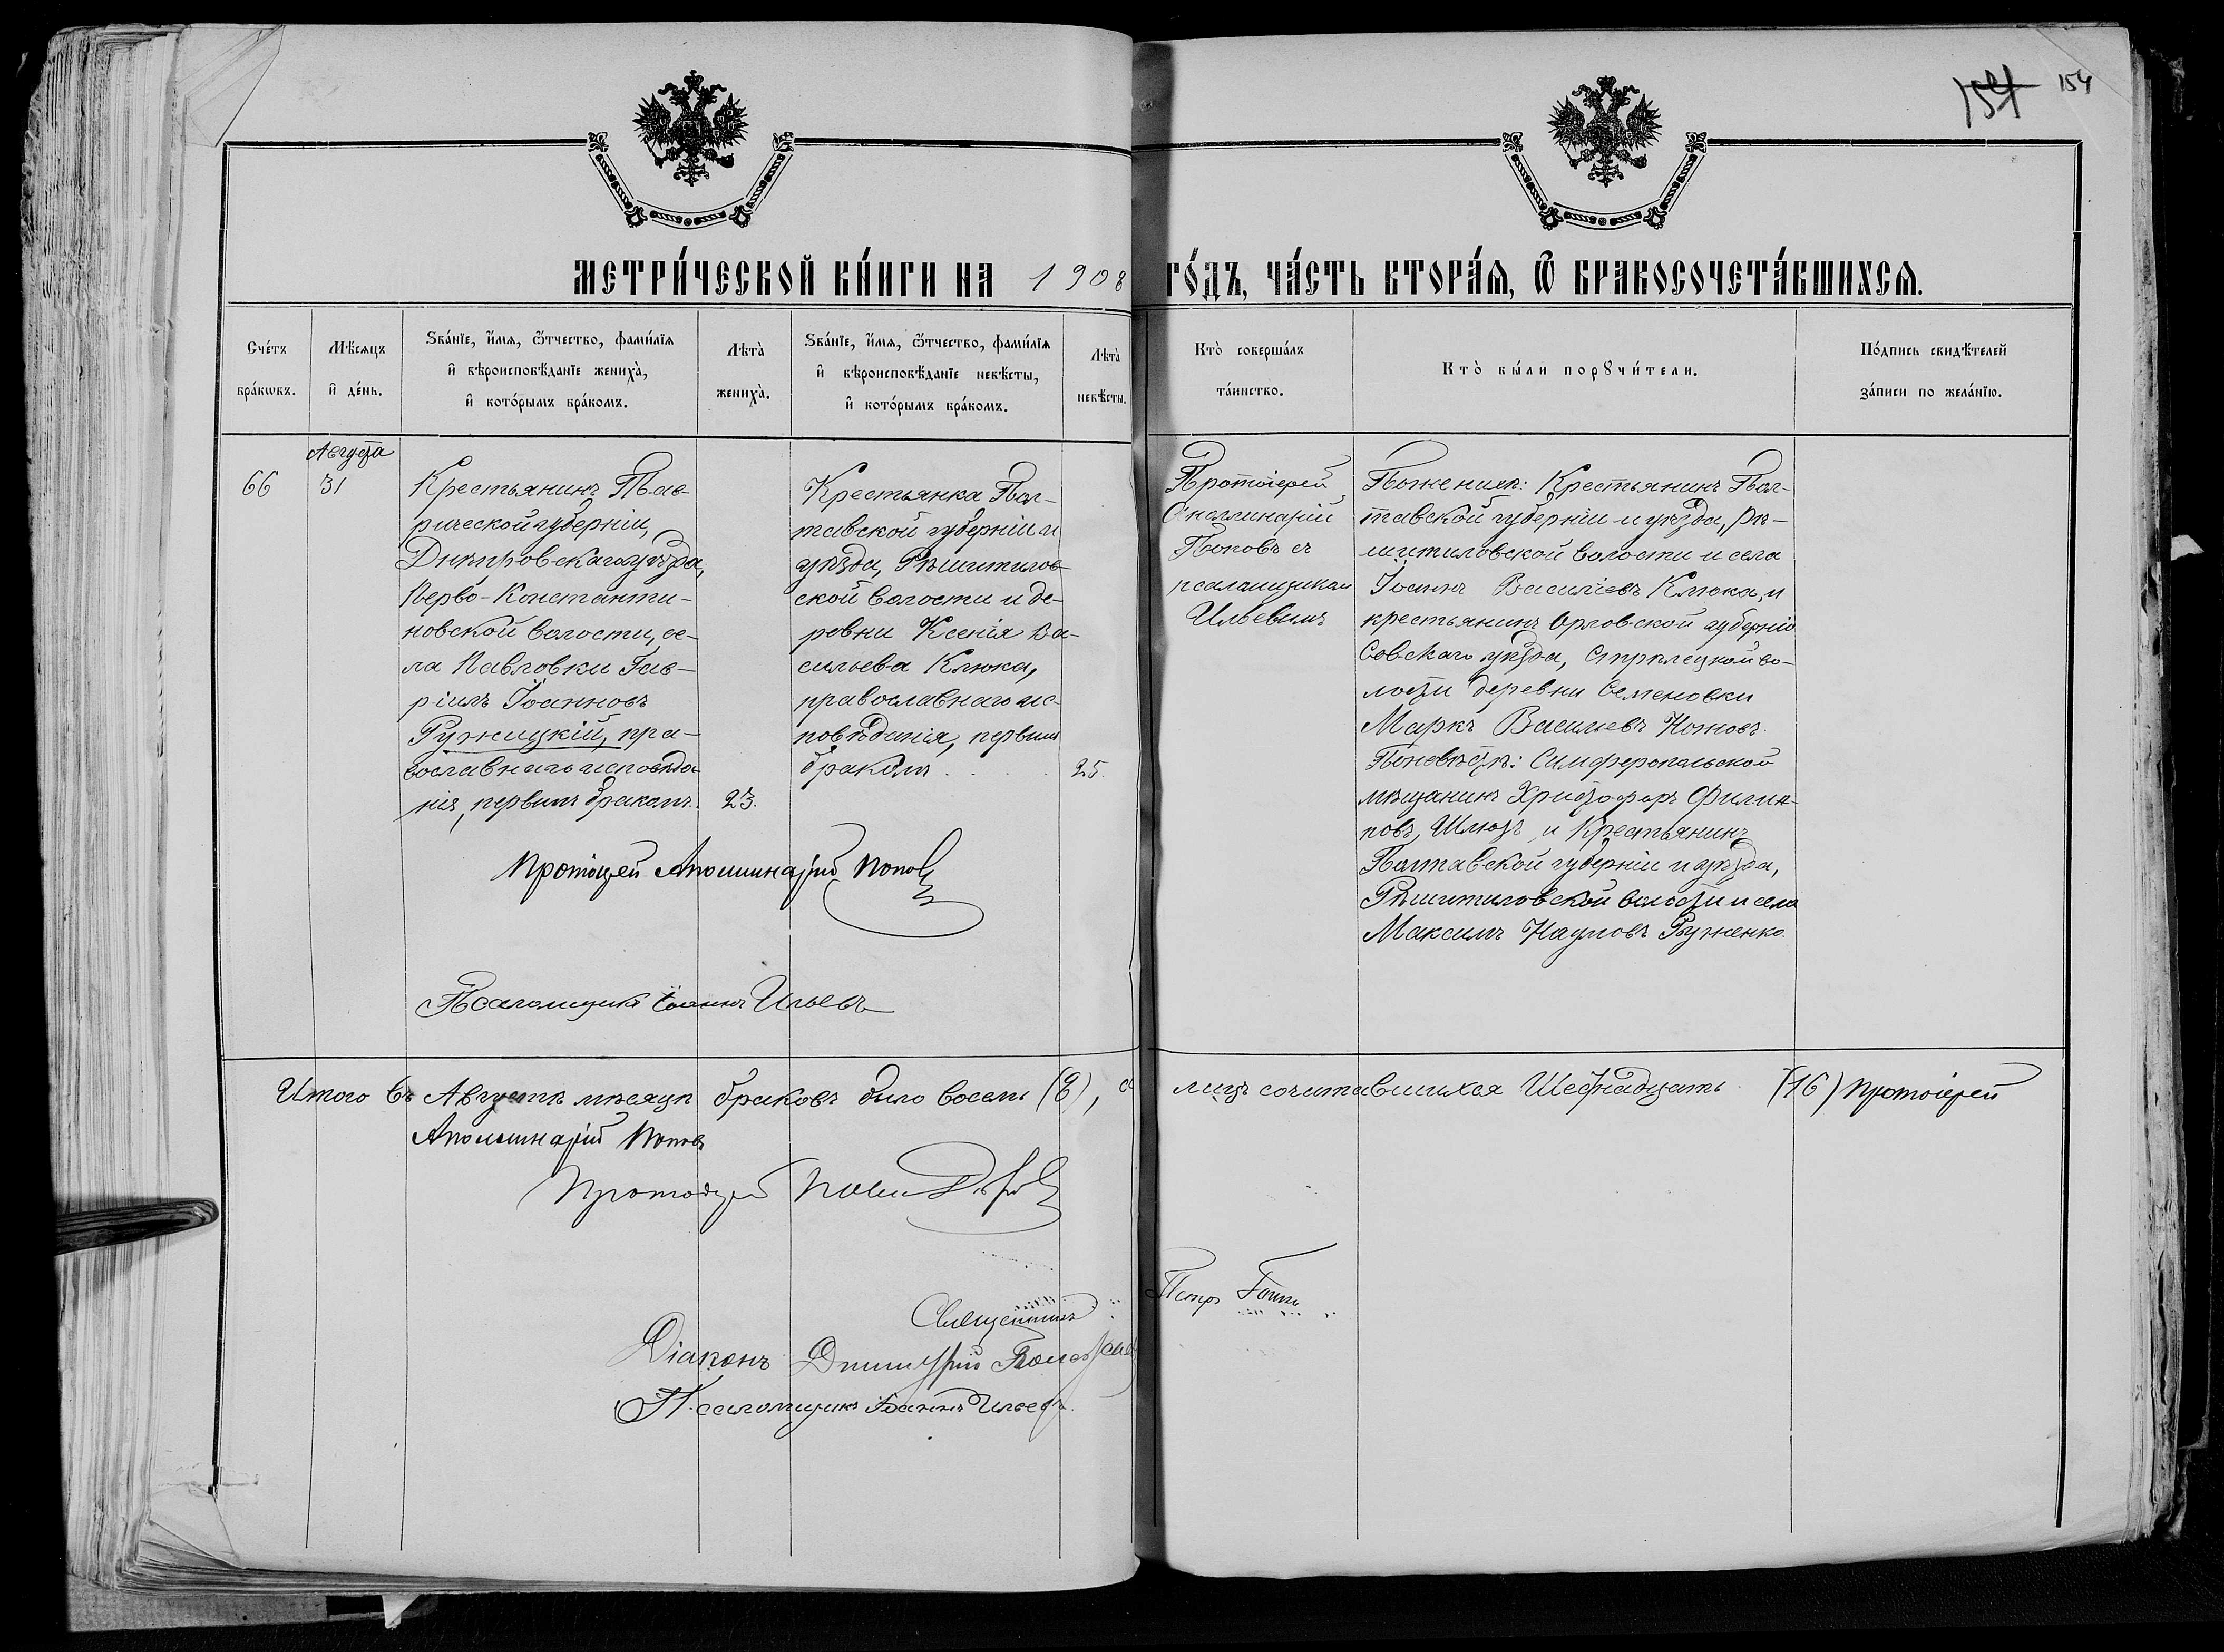 154 154
МЕТРИ́ЧЕСКОЙ КНИ́ГИ НА 1908 ГО́ДЪ, ЧА́СТЬ ВТОРА́Я, Ѿ БРАКОСОЧЕТА́ВШИХСЯ.
Сче́тъ бра́кѡвъ.
Мѣ́сяцъ и҆ де́нь.
Ѕва́нїе, и҆́мя, ѻ҆́тчество, фами́лїя
и҆ вѣроисповѣ́данїе жениха̀,
и҆ кото́рымъ бра́комъ.
Лѣта̀ жениха̀.
Ѕва́нїе, и҆́мя, ѻ҆́тчество, фами́лїя
и҆ вѣроисповѣ́данїе невѣ́сты,
и҆ кото́рымъ бра́комъ.
Лѣта̀ невѣ́сты.
Кто̀ соверша́лъ
та́инство.
Кто̀ бы́ли порꙋчи́тели.
По́дпись свидѣ́телей
за́писи по жела́нїю.
Августа
66 31
Крестьянинъ Тав-
рической губерніи,
Днѣпровскаго уѣзда,
Перво-Константи-
новской волости, се-
ла Павловки Гав-
ріилъ Іоанновъ
Ружицкій, пра-
вославнаго исповѣда-
нія, первымъ бракомъ. 23.
Крестьянка Пол-
тавской губерніи и
уѣзда, Рѣшитилов-
ской волости и де-
ревни Ксенія Ва-
сильева Клюка,
православнаго ис-
повѣданія, первымъ
бракомъ . . . . 25.
Протоіерей
Аполлинарій
Поповъ съ
псаломщикомъ
Ильевымъ
По женихѣ: Крестьянинъ Пол-
тавской губерніи и уѣзда, Рѣ-
шитиловской волости и села
Іоаннъ Василіевъ Клюка, и
крестьянинъ Орловской губерніи
Сѣвскаго уѣзда, Стрѣлецкой во-
лости деревни Семеновки
Маркъ Василіевъ Ножовъ.
По невѣстѣ: Симферопольской
мѣщанинъ Христофоръ Филип-
повъ Шлютъ и Крестьянинъ
Полтавской губерніи и уѣзда,
Рѣшитиловской волости и села
Максимъ Наумовъ Руженко.
Протоіерей Аполлинарій Поповъ
Псаломщикъ Іоаннъ Ильевъ
Итого въ Августѣ мѣсяцѣ браковъ было восемь (8), а лицъ сочетавшихся Шестнадцать (16) Протоіерей
Аполлинарій Поповъ
Протоіерей
Священникъ Петръ
Діаконъ Димитрій
Псаломщикъ Іоаннъ Ильевъ.